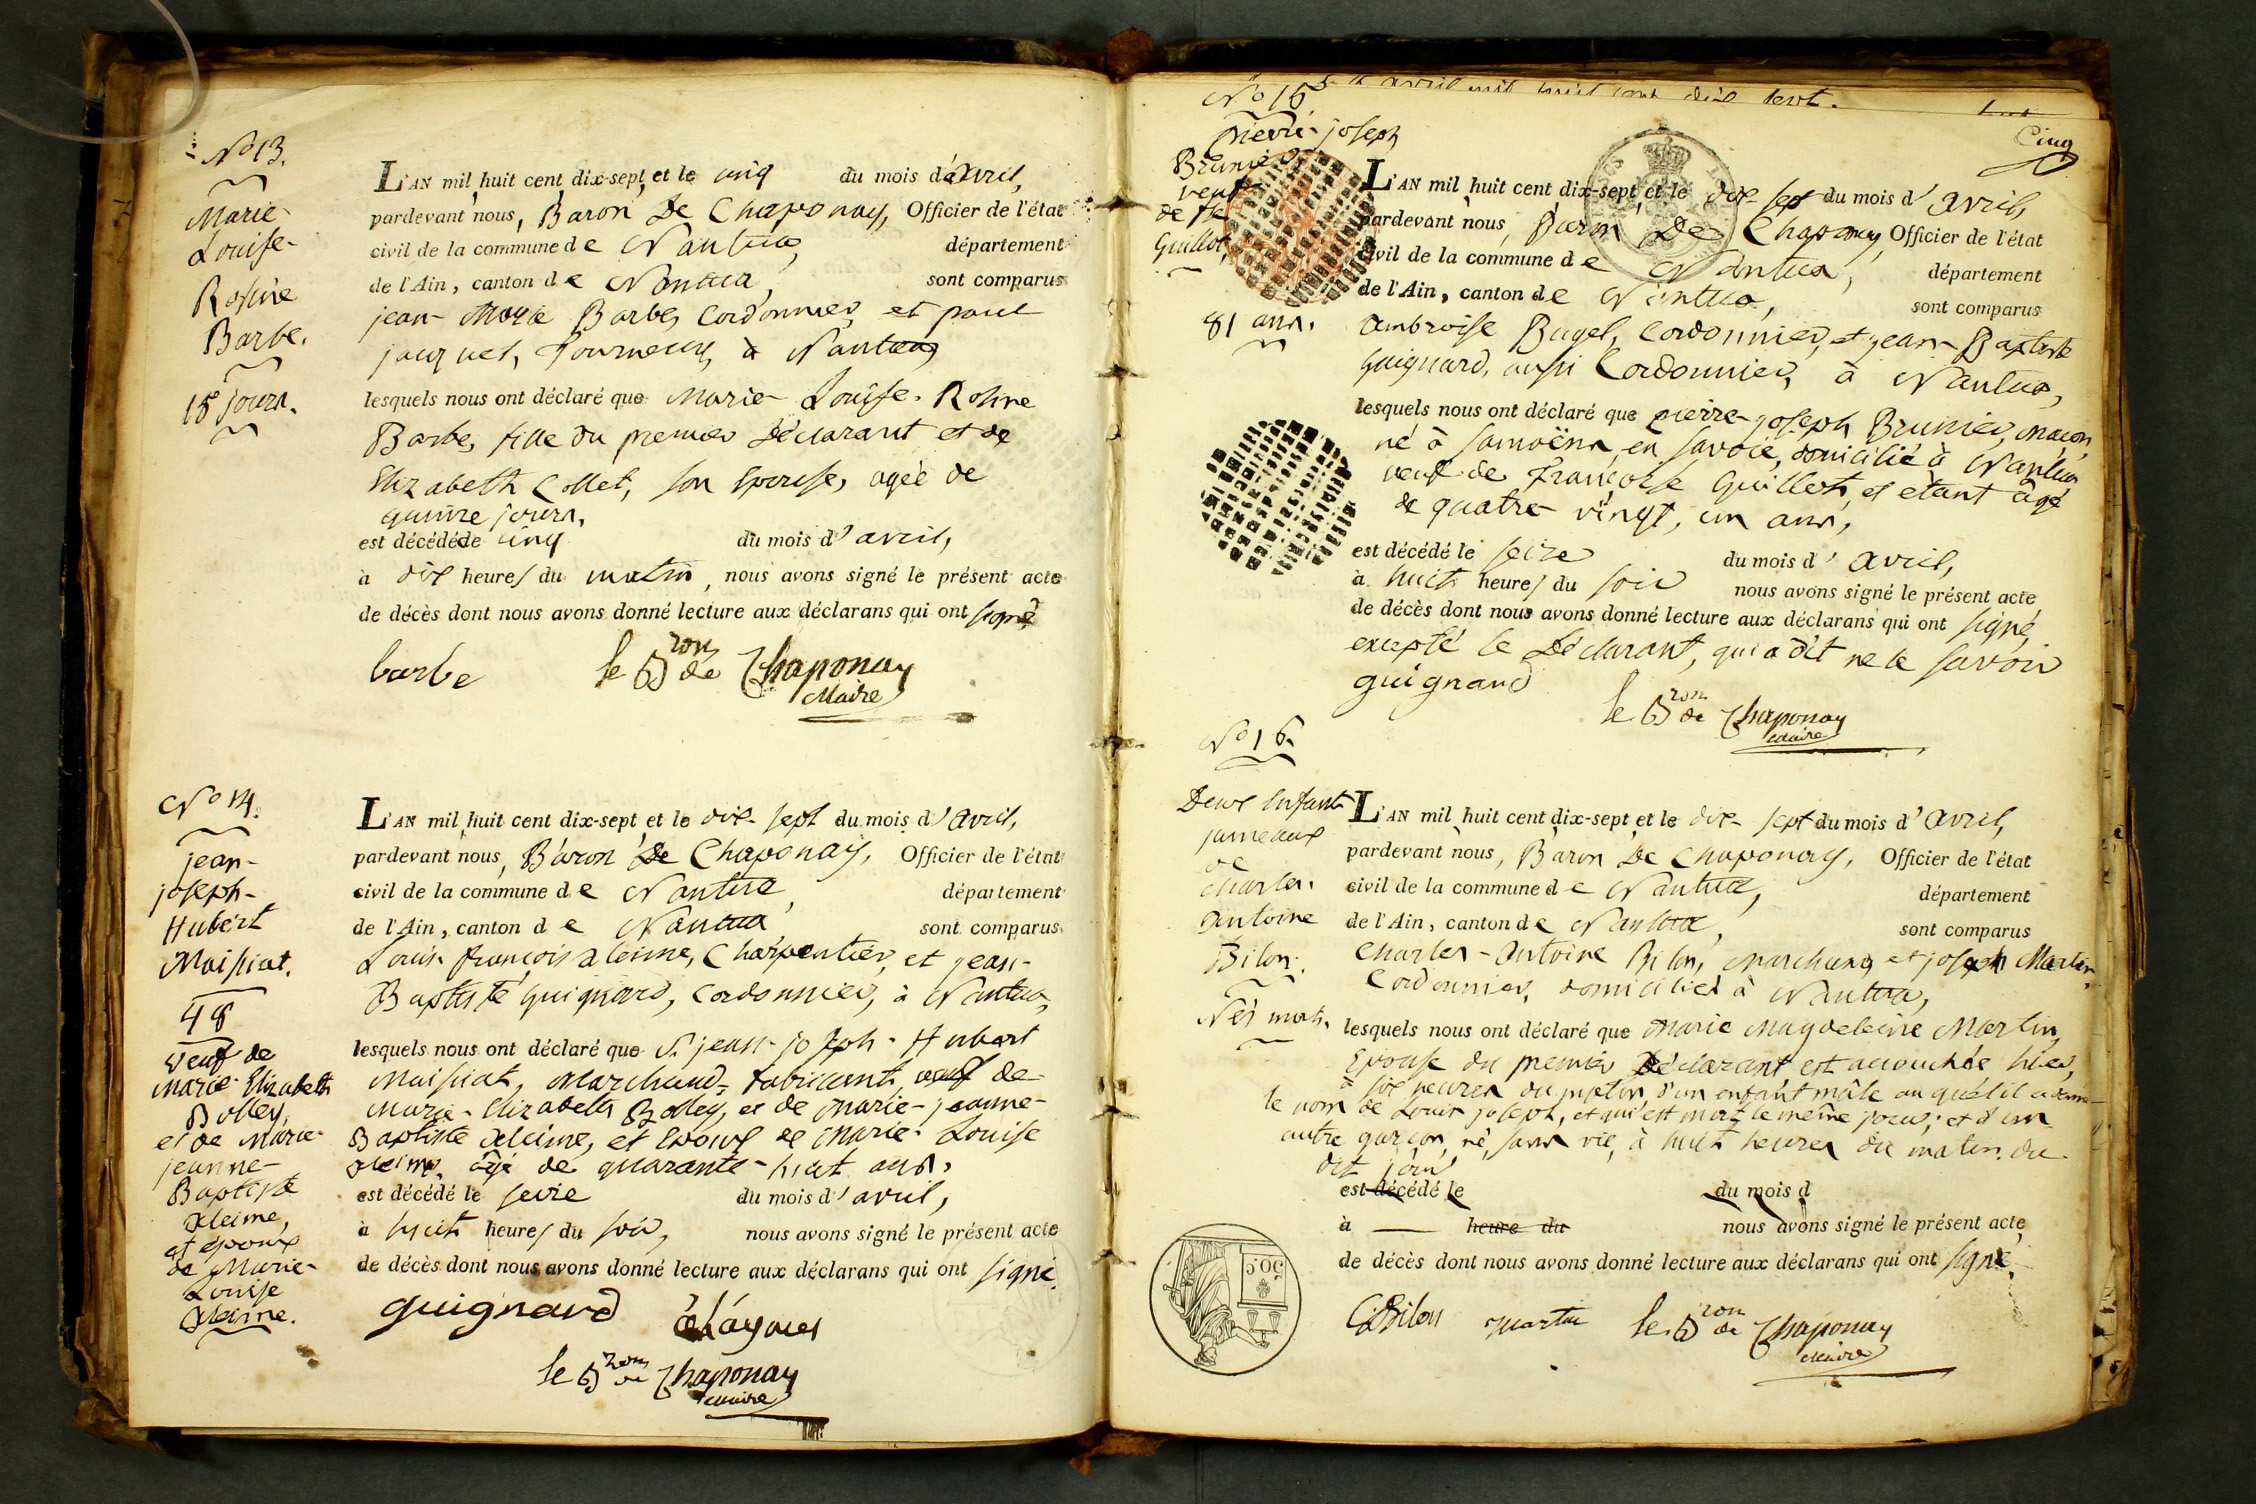 N° 13.
Marie-
Louise-
Rosine
Barbe.
15 jours.
L'AN mil huit cent dix-sept et le cinq du mois d'avril,
pardevant nous, Baron De Chaponay, Officier de l'état
civil de la commune de Nantua, département
de l'Ain, canton de Nantua, sont comparus
jean-Marie Barbe, Cordonnier, et paul
jacquet, Tourneur, à Nantua,
lesquels nous ont déclaré que Marie-Louise-Rosine
Barbe, fille du premier Déclarant et de
Elizabeth Collet, son Epouse, agée de
quinze jours,
est décédée le cinq du mois d'avril,
à dix heures du matin, nous avons signé le présent acte
de décès dont nous avons donné lecture aux déclarans qui ont signé
barbe le Bron de Chaponay
Maire
N° 14.
jean-
joseph-
Hubert
Maissiat.
48
veuf de
Marie-Elizabeth
Bolley,
et de Marie-
jeanne-
Baptiste
Aleime,
et époux
de Marie-
Louise
Aleime.
L'AN mil huit cent dix-sept et le dix-sept du mois d'avril,
pardevant nous, Baron De Chaponay, Officier de l'état
civil de la commune de Nantua, département
de l'Ain, canton de Nantua, sont comparus
Louis-françois Aleime, Charpentier, et jean-
Baptiste Guignard, Cordonnier, à Nantua,
lesquels nous ont déclaré que S. jean-joseph-Hubert
Maissiat, Marchand-fabricant, veuf de
Marie-Elizabeth Bolley, et de Marie-jeanne-
Baptiste Aleime, et Epoux de Marie-Louise
Aleime, âgé de quarante-huit ans,
est décédé le seize du mois d'avril,
à huit heures du soir, nous avons signé le présent acte
de décès dont nous avons donné lecture aux déclarans qui ont signé.
guignard
le Bron de Chaponay
Maire
avril mil huit cent dix sept.
Cinq
N° 15
Pierre-joseph
Brunier
veuf
de fse
Guillot,
81 ans.
L'AN mil huit cent dix-sept et le dix-sept du mois d'avril,
pardevant nous, Baron De Chaponay, Officier de l'état
civil de la commune de Nantua, département
de l'Ain, canton de Nantua, sont comparus
Ambroise Bugel, Cordonnier, et jean-Baptiste
Guignard, aussi Cordonnier, à Nantua,
lesquels nous ont déclaré que pierre-joseph Brunier, maçon,
né à Samoëns, en Savoie, domicilié à Nantua
veuf de françoise Guillot, et étant âgé
de quatre-vingt, un ans,
est décédé le seize du mois d'avril,
à huit heures du soir nous avons signé le présent acte
de décès dont nous avons donné lecture aux déclarans qui ont signé,
excepté le Déclarant, qui a dit ne le savoir
guignard
le Bron de Chaponay
Maire
N° 16.
Deux Enfants
jumeaux
de
Charles-
Antoine
Bilon.
Nés morts.
L'AN mil huit cent dix-sept et le dix-sept du mois d'avril,
pardevant nous, Baron De Chaponay, Officier de l'état
civil de la commune de Nantua, département
de l'Ain, canton de Nantua, sont comparus
Charles-Antoine Bilon, Marchand et joseph Martin,
Cordonnier, domiciliés à Nantua,
lesquels nous ont déclaré que Marie Magdeleine Martin,
Epouse du premier Déclarant est accouchée hier,
à six heures du matin, d'un enfant mâle auquel il a donné
le nom de Louis joseph, et qui est mort le même jour; et d'un
autre garçon, né sans vie, à huit heures du matin du
dit jour
est décédé le du mois d
à heure du nous avons signé le présent acte
de décès dont nous avons donné lecture aux déclarans qui ont signé.
50 C
Bilon martin le Bron de Chaponay
Maire